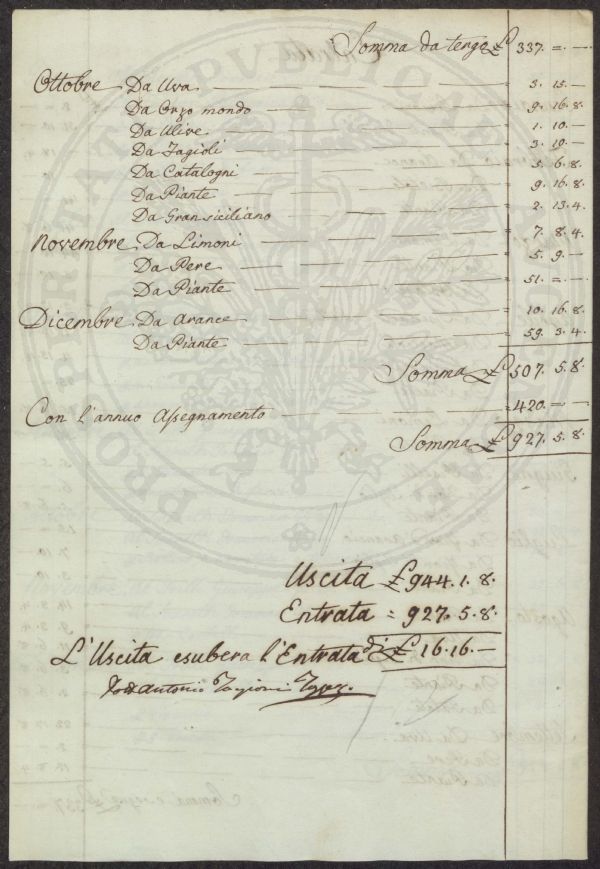 Somma da tergo £ 337. = . —
Ottobre Da Uva 3. 15. —
Da Orzo mondo 9. 16. 8.
Da Ulive 1. 10. —
Da Fagioli 3. 10. —
Da Catalogni 5. 6. 8.
Da Piante 9. 16. 8.
Da Gran siciliano 2. 13. 4.
Novembre Da Limoni 7. 8. 4.
Da Pere 5. 9. —
Da Piante 51. = . —
Dicembre Da Arance 10. 16. 8.
Da Piante 59. 3. 4.
Somma £ 507. 5. 8.
Con l'annuo Assegnamento = 420. — —
Somma £ 927. 5. 8.
Uscita £ 944. 1. 8.
Entrata = 927. 5. 8.
L'Uscita esubera l'Entrata di £ 16. 16. —
Antonio